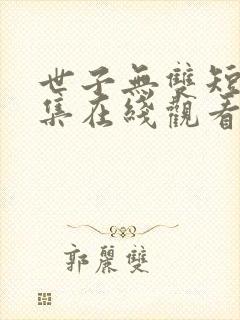 世子無雙短
集在綫觀看
郭麗雙